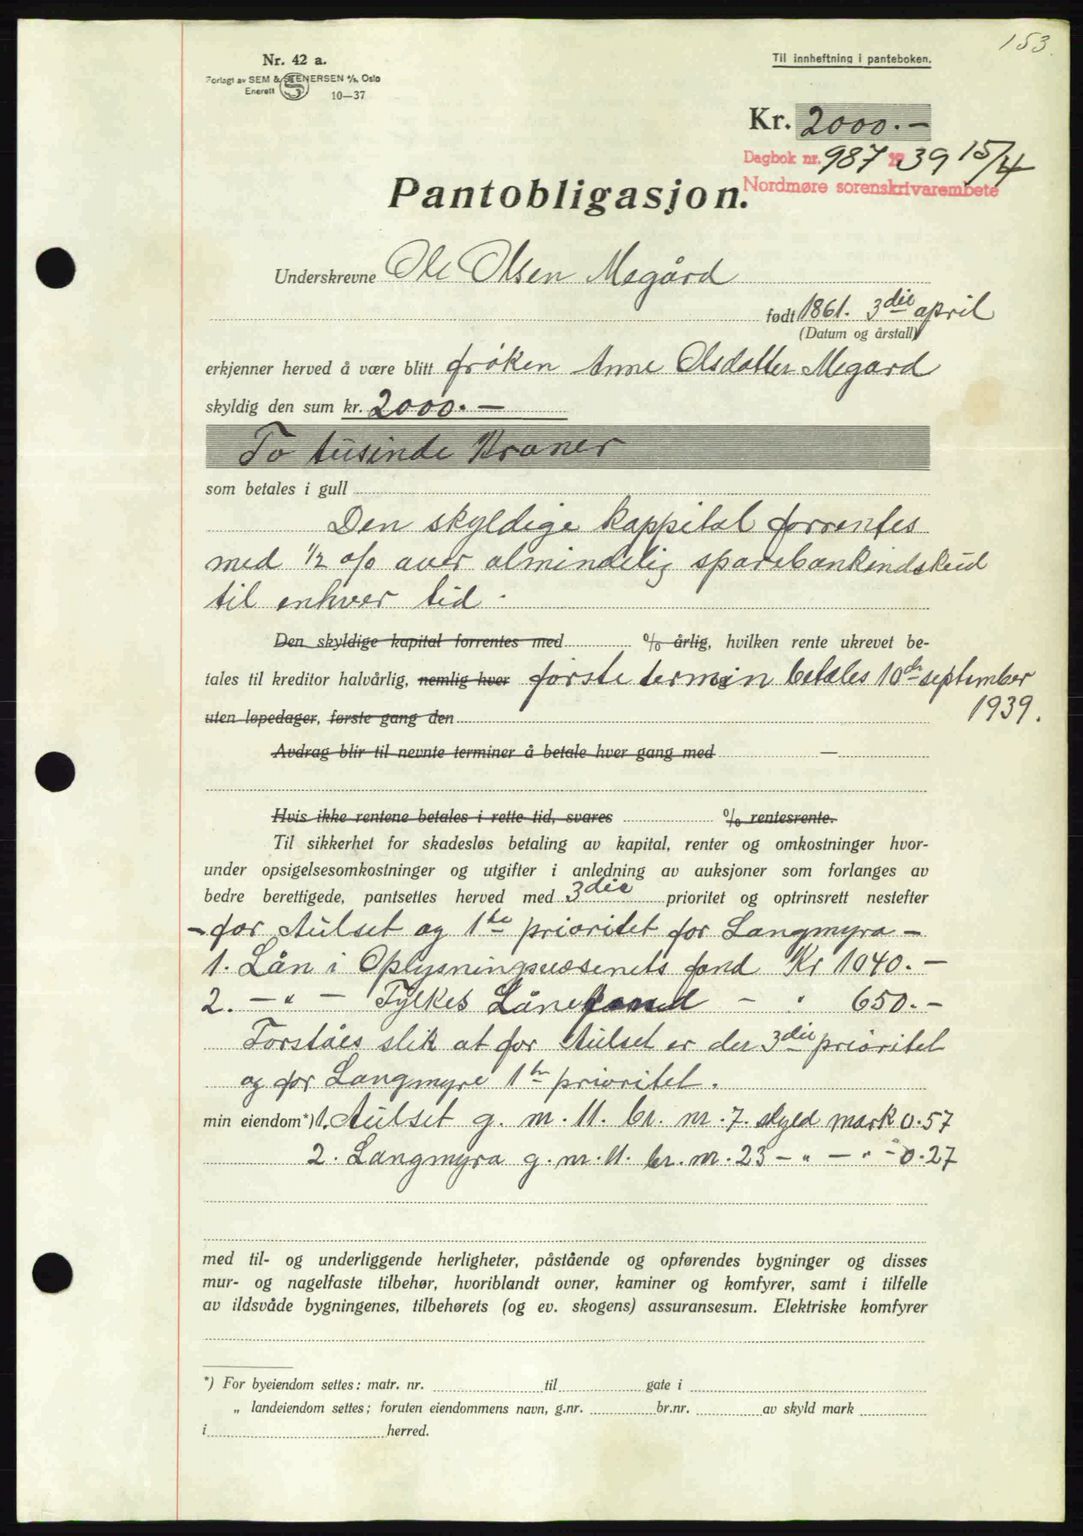 153.
Nr. 42 a.
Forlagt av SEM & STENERSEN A/S, Oslo
Enerett
10—37
Til innheftning i panteboken.
Kr. 2000.—
Dagbok nr. 987 1939 15/4
Nordmøre sorenskrivarembete
Pantobligasjon.
Underskrevne Ole Olsen Megård
født 1861. 3die april
(Datum og årstall)
erkjenner herved å være blitt frøken Anne Olsdatter Megard
skyldig den sum kr. 2000.—
To tusinde Kroner
som betales i gull
Den skyldige kappital forrentes
med ½ o/o over almindelig sparebankindskud
til enhver tid.
Den skyldige kapital forrentes med % årlig, hvilken rente ukrevet be-
tales til kreditor halvårlig, nemlig hver første termin betales 10de september
uten løpedager, første gang den 1939.
Avdrag blir til nevnte terminer å betale hver gang med —
Hvis ikke rentene betales i rette tid, svares % rentesrente.
Til sikkerhet for skadesløs betaling av kapital, renter og omkostninger hvor-
under opsigelsesomkostninger og utgifter i anledning av auksjoner som forlanges av
bedre berettigede, pantsettes herved med 3die prioritet og optrinsrett nestefter
- for Aulset og 1ste prioritet for Langmyra -
1. Lån i Oplysningsvæsenets fond Kr 1040.—
2. — " — Fylkes Lånefond — " 650.—
Forståes slik at for Aulset er der 3die prioritet
og for Langmyre 1ste prioritet.
min eiendom*) 1. Aulset g. nr. 11. br. nr. 7. skyld mark 0.57
2. Langmyra g. nr. 11. br. nr. 23 — " — " — 0.27
med til- og underliggende herligheter, påstående og opførendes bygninger og disses
mur- og nagelfaste tilbehør, hvoriblandt ovner, kaminer og komfyrer, samt i tilfelle
av ildsvåde bygningenes, tilbehørets (og ev. skogens) assuransesum. Elektriske komfyrer
*) For byeiendom settes: matr. nr. til gate i
„ landeiendom settes; foruten eiendommens navn, g.nr. br.nr. av skyld mark
i herred.